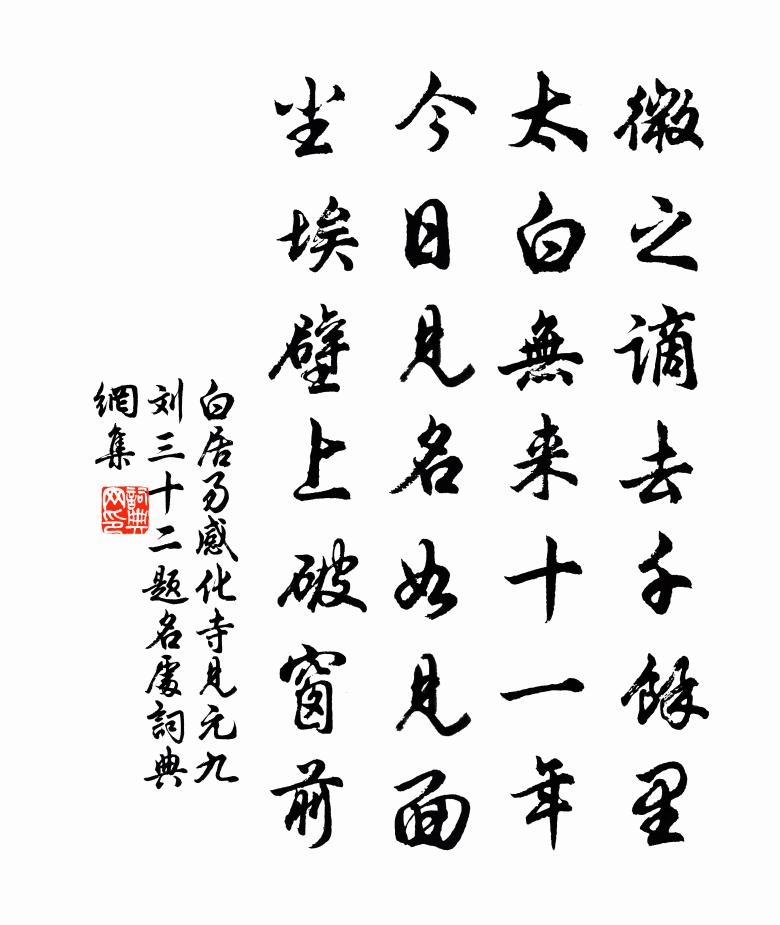 微之謫去千餘里
太白無来十一年
今日見名如見面
尘埃壁上破窗前
白居易感化寺見元九
刘三十二题名處詞典
網集
詞典网印